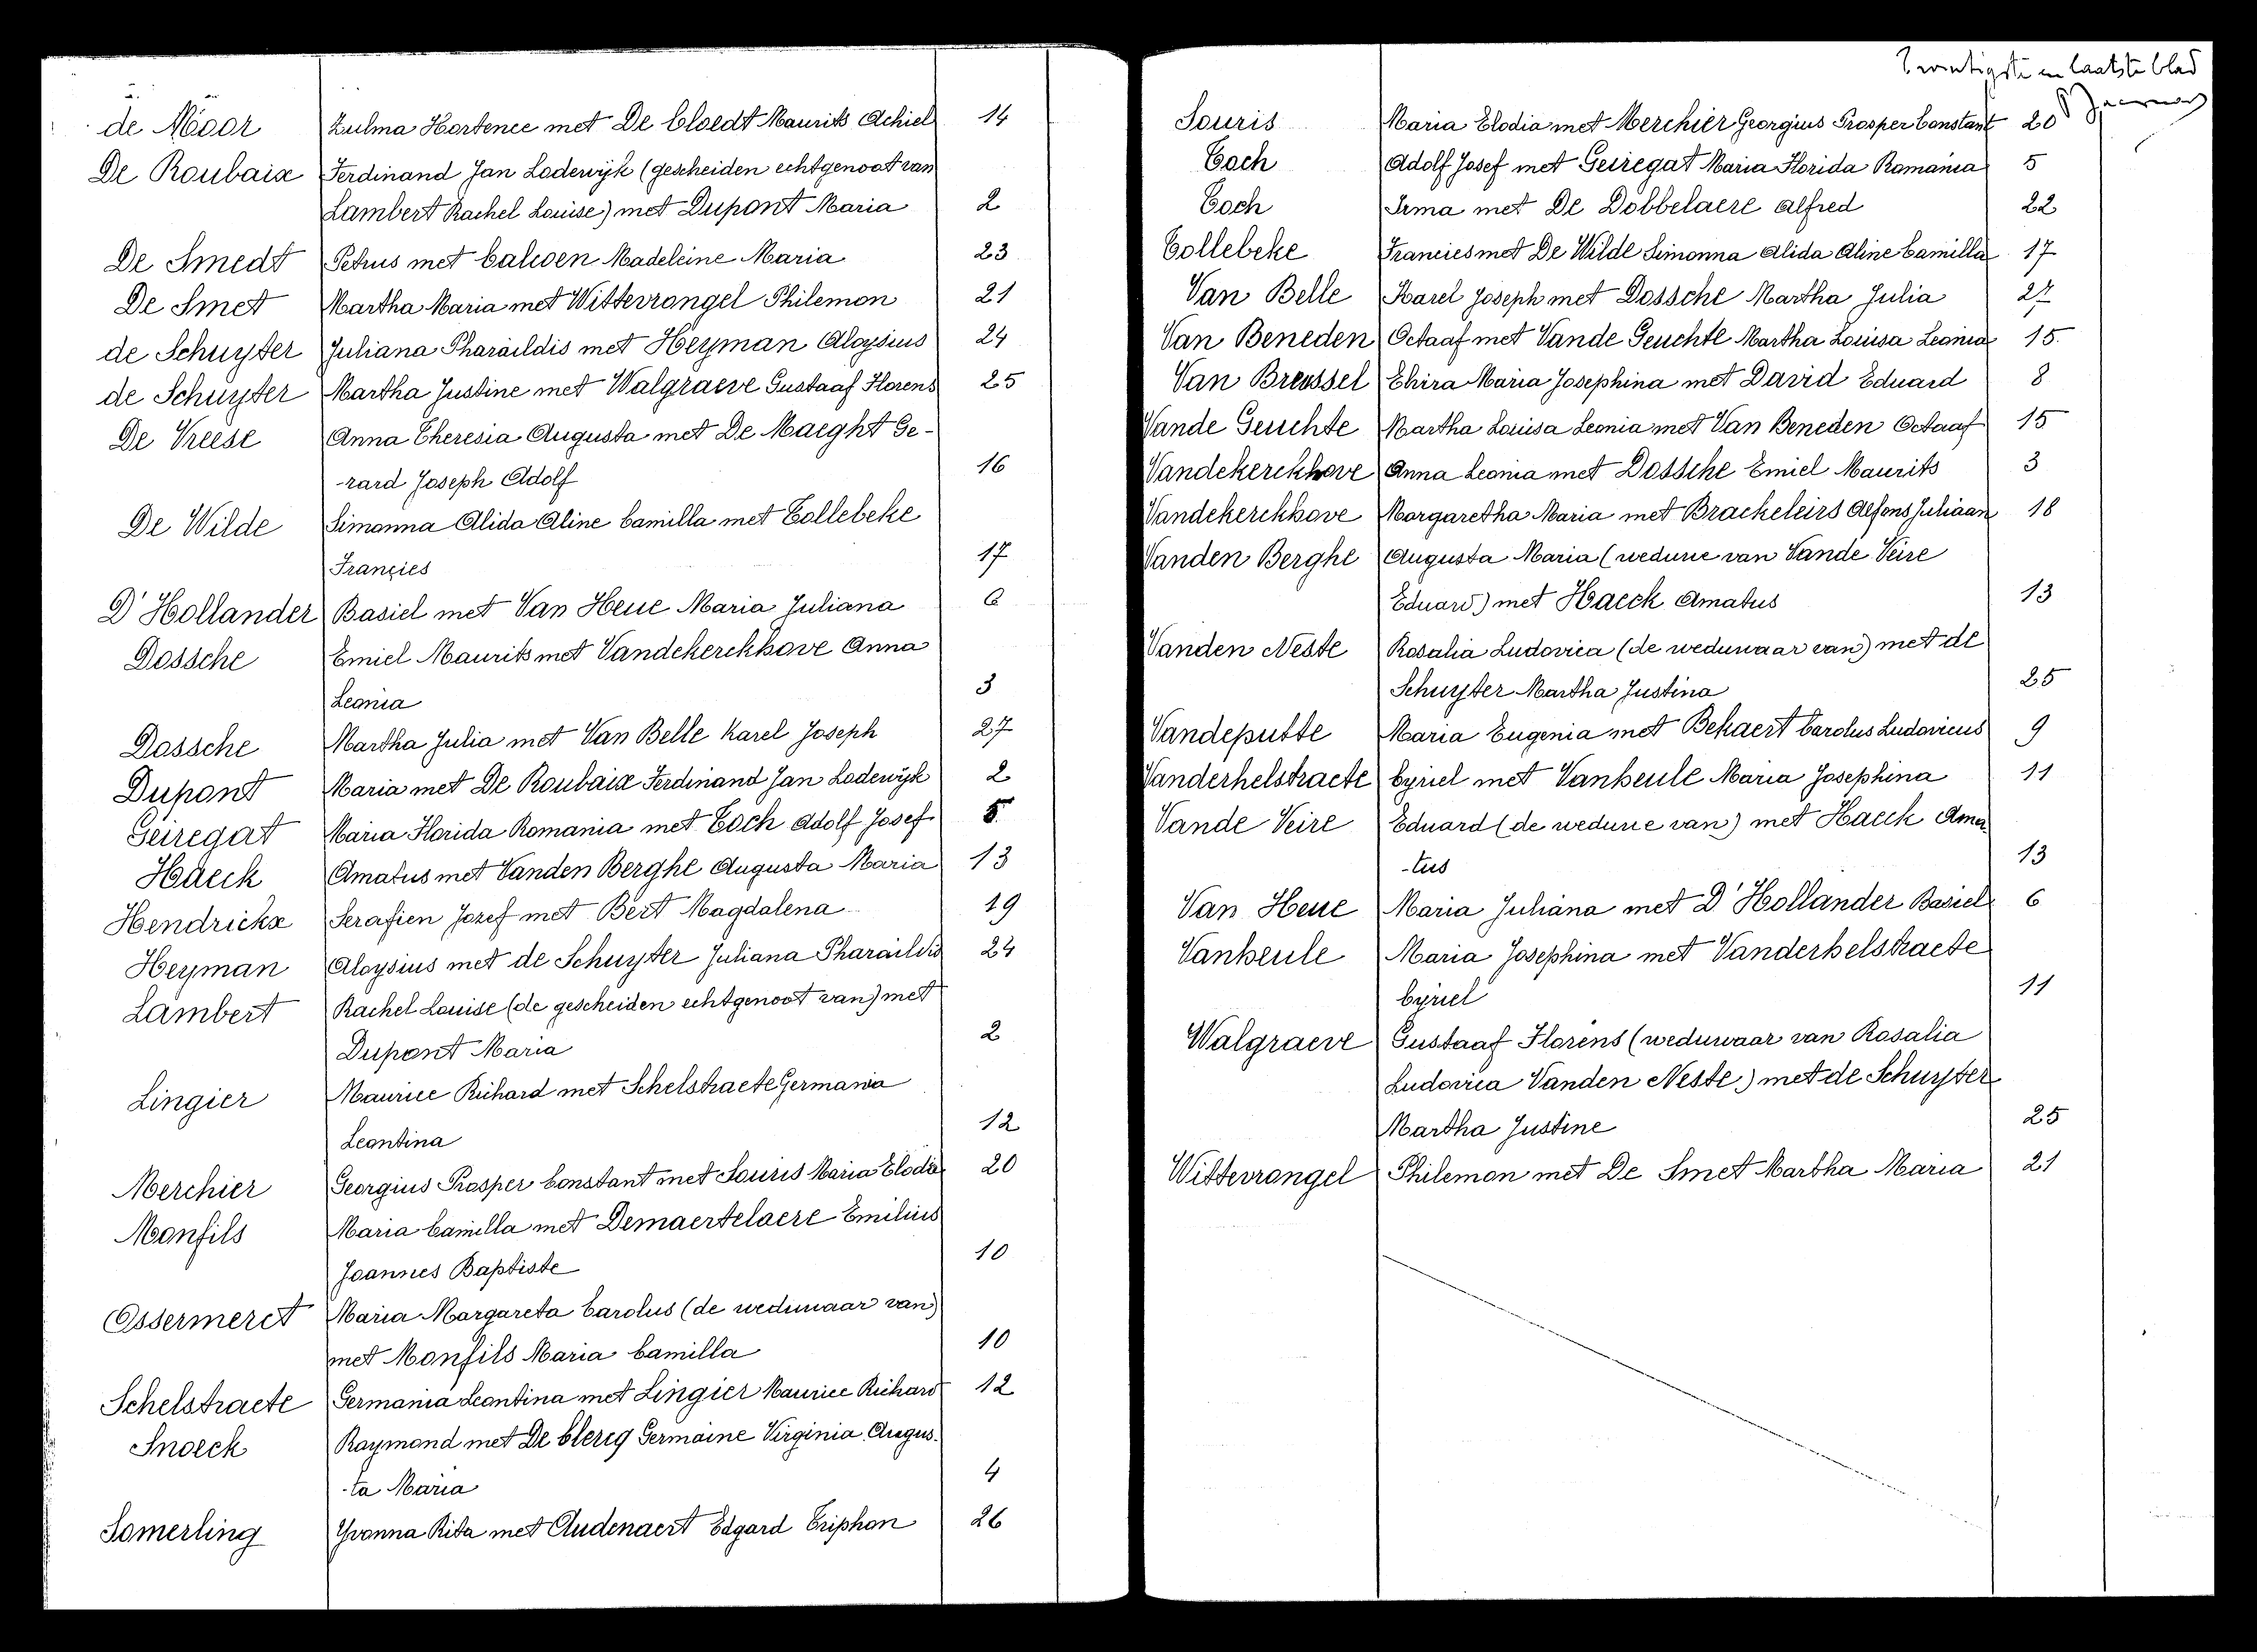 de Moor Zulma Hortence met De Cloedt Maurits Achiel 14
De Roubaix Ferdinand Jan Lodewijk (gescheiden echtgenoot van
Lambert Rachel Louise) met Dupont Maria 2
De Smedt Petrus met Calwen Madeleine Maria 23
De Smet Martha Maria met Wittevrongel Philemon 21
de Schuyter Juliana Pharaïldis met Heyman Aloysius 24
de Schuyter Martha Justine met Walgraeve Gustaaf Florens 25
De Vreese Anna Theresia Augusta met De Maeght Ge-
-rard Joseph Adolf 16
De Wilde Simonna Alida Aline Camilla met Tollebeke
Francies 17
D'Hollander Basiel met Van Heue Maria Juliana 6
Dossche Emiel Maurits met Vandekerckhove Anna
Leonia 3
Dossche Martha Julia met Van Belle Karel Joseph 27
Dupont Maria met De Roubaix Ferdinand Jan Lodewijk 2
Geiregat Maria Florida Romania met Toch Adolf Josef 5
Haeck Amatus met Vanden Berghe Augusta Maria 13
Hendrickx Serafien Jozef met Bert Magdalena 19
Heyman Aloysius met de Schuyter Juliana Pharaïldis 24
Lambert Rachel Louise (de gescheiden echtgenoot van) met
Dupont Maria 2
Lingier Maurice Richard met Schelstraete Germania
Leontina 12
Merchier Georgius Prosper Constant met Souris Maria Elodia 20
Monfils Maria Camilla met Demaertelaere Emilius
Joannes Baptiste 10
Ossermeret Maria Margareta Carolus (de weduwaar van)
met Monfils Maria Camilla 10
Schelstraete Germania Leontina met Lingier Maurice Richard 12
Snoeck Raymond met De Clercq Germaine Virginia Augus-
-ta Maria 4
Somerling Yvonna Rita met Audenaert Edgard Triphon 26
Twintigste en laatste blad
Souris Maria Elodia met Merchier Georgius Prosper Constant 20
Toch Adolf Josef met Geiregat Maria Florida Romania 5
Toch Irma met De Dobbelaere Alfred 22
Tollebeke Francies met De Wilde Simonna Alida Aline Camilla 17
Van Belle Karel Joseph met Dossche Martha Julia 27
Van Beneden Octaaf met Vande Geuchte Martha Louisa Leonia 15
Van Breussel Elvira Maria Josephina met David Eduard 8
Vande Geuchte Martha Louisa Leonia met Van Beneden Octaaf 15
Vandekerckhove Anna Leonia met Dossche Emiel Maurits 3
Vandekerckhove Margaretha Maria met Brackeleirs Alfons Juliaan 18
Vanden Berghe Augusta Maria (weduwe van Vande Veire
Eduard) met Haeck Amatus 13
Vanden Neste Rosalia Ludovica (de weduwaar van) met de
Schuyter Martha Justina 25
Vandeputte Maria Eugenia met Bekaert Carolus Ludovicus 9
Vanderhelstraete Cyriel met Vanheule Maria Josephina 11
Vande Veire Eduard (de weduwe van) met Haeck Ama
-tus 13
Van Heue Maria Juliana met D'Hollander Basiel 6
Vanheule Maria Josephina met Vanderhelstraete
Cyriel 11
Walgraeve Gustaaf Florens (weduwaar van Rosalia
Ludovica Vanden Neste) met de Schuyter
Martha Justine 25
Wittevrongel Philemon met De Smet Martha Maria 21